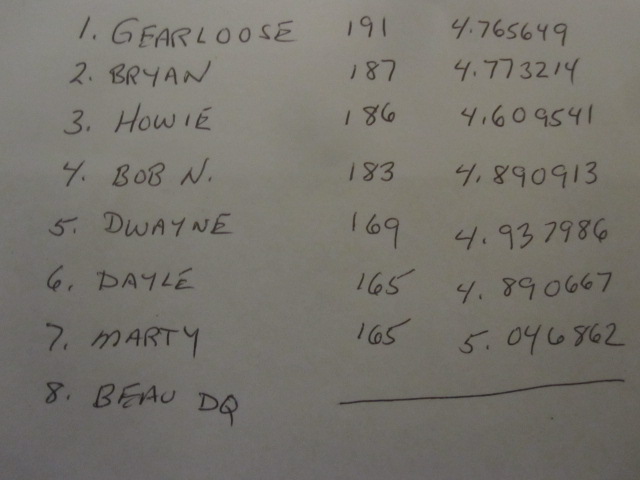 1. GEARLOOSE 191 4.765649
2. BRYAN 187 4.773214
3. HOWIE 186 4.609541
4. BOB N. 183 4.890913
5. DWAYNE 169 4.937986
6. DAYLE 165 4.890667
7. MARTY 165 5.046862
8. BEAU DQ